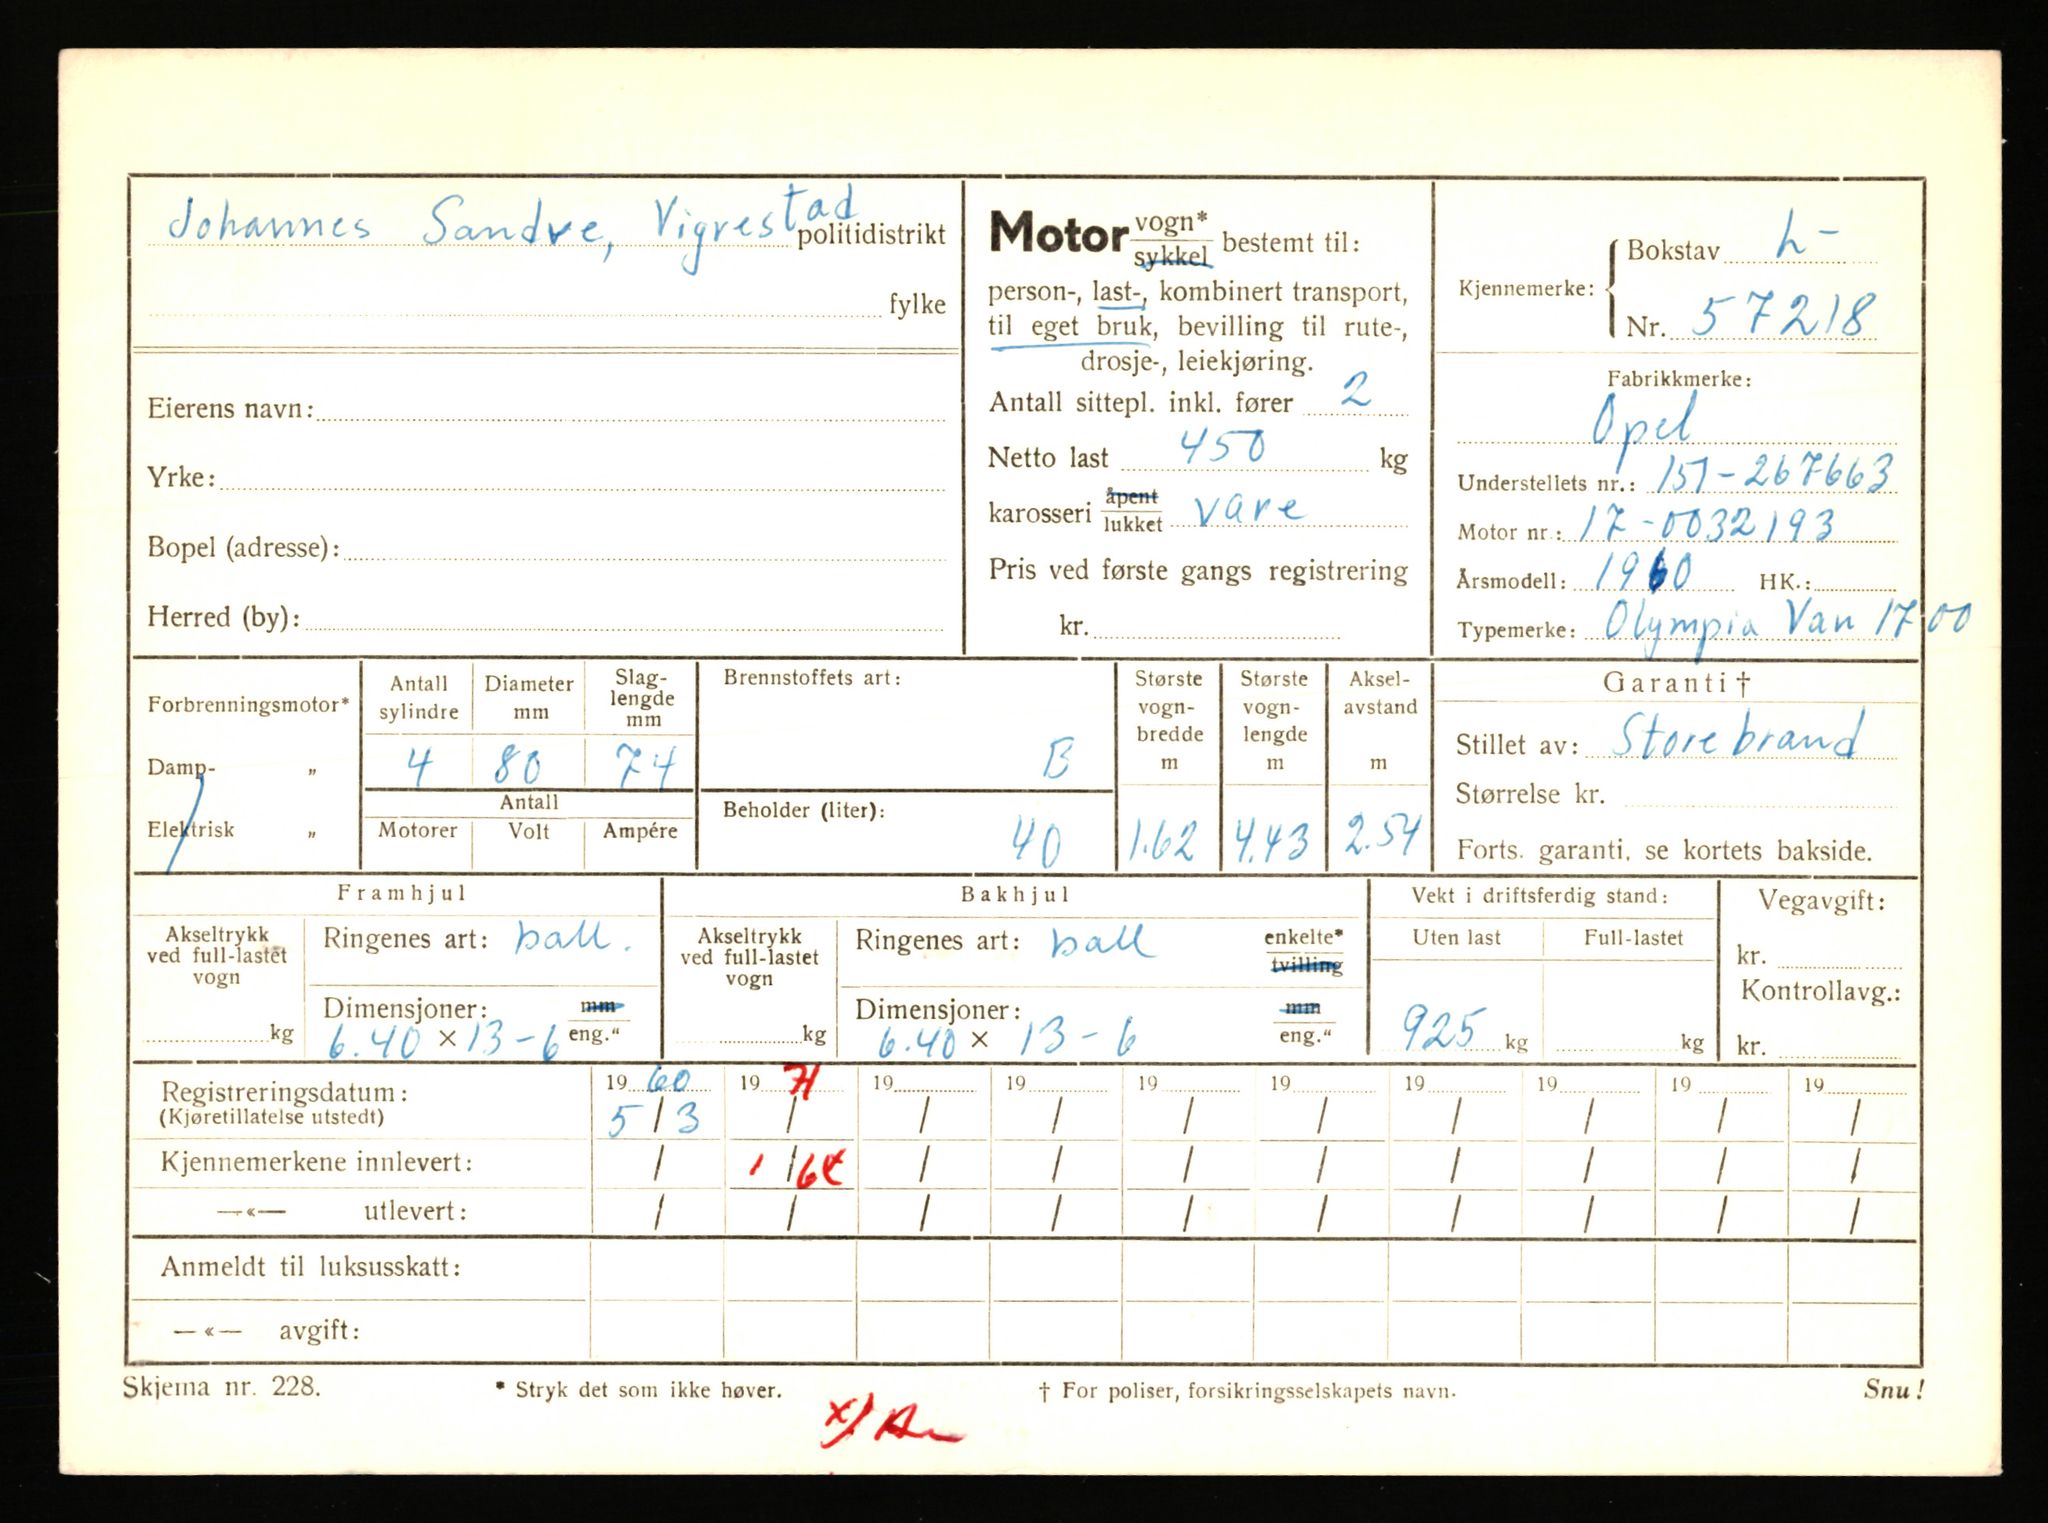 Johannes Sandve, Vigrestad politidistrikt
fylke
Eierens navn:
Yrke:
Bopel (adresse):
Herred (by):
Motor vogn* sykkel bestemt til:
person-, last-, kombinert transport,
til eget bruk, bevilling til rute-,
drosje-, leiekjøring.
Antall sittepl. inkl. fører 2
Netto last 450 kg
karosseri åpent lukket vare
Pris ved første gangs registrering
kr.
Kjennemerke: Bokstav L-
Nr. 57218
Fabrikkmerke:
Opel
Understellets nr.: 151-267663
Motor nr.: 17-0032193
Årsmodell: 1960 HK.:
Typemerke: Olympia Van 1700
Forbrenningsmotor*
Damp- „
Elektrisk „
Antall sylindre
Diameter mm
Slaglengde mm
4 80 74
Antall
Motorer Volt Ampére
Brennstoffets art:
B
Beholder (liter):
40
Største vogn-bredde m
1.62
Største vogn-lengde m
4.43
Aksel-avstand m
2.54
Garanti †
Stillet av: Storebrand
Størrelse kr.
Forts. garanti, se kortets bakside.
Framhjul
Akseltrykk ved full-lastet vogn
kg
Ringenes art: ball.
Dimensjoner: mm eng.“
6.40 × 13-6
Bakhjul
Akseltrykk ved full-lastet vogn
kg
Ringenes art: ball enkelte* tvilling
Dimensjoner: mm eng.“
6.40 × 13-6
Vekt i driftsferdig stand:
Uten last Full-lastet
925 kg kg
Vegavgift:
kr.
Kontrollavg.:
kr.
Registreringsdatum: 19 60 19 71 19 19 19 19 19 19 19 19
(Kjøretillatelse utstedt) 5/3 / / / / / / / / /
Kjennemerkene innlevert: / / / / / / / / / /
—«— utlevert: / / / / / / / / / /
Anmeldt til luksusskatt:
—«— avgift:
Skjema nr. 228.
* Stryk det som ikke høver.
† For poliser, forsikringsselskapets navn.
Snu!